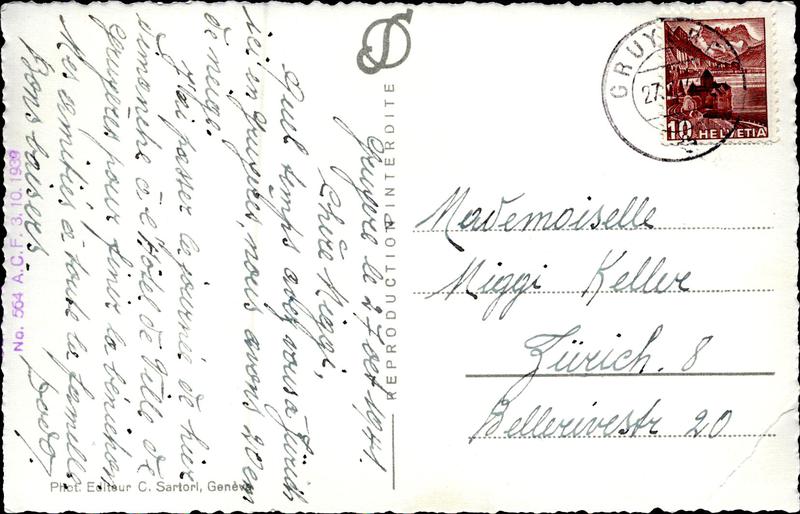 Gruyère le 27 oct 1941.
Chère Miggi,
Quel temps avez vous à Zürich
ici en Gruyères, nous avons 20 cm
de neige.
J'ai passer la journée de hier
dimanche à l'Hôtel de Ville de
Gruyères pour finir la bénichon
Mes amitiés à toute la famille
Bons baisers.
Dodo.
No. 564 A.C.F. 3.10.1939
Phot. Editeur C. Sartori, Genève
REPRODUCTION INTERDITE
GRUYERES
27.
10 HELVETIA
Mademoiselle
Miggi Keller
Zürich. 8
Bellerivestr 20